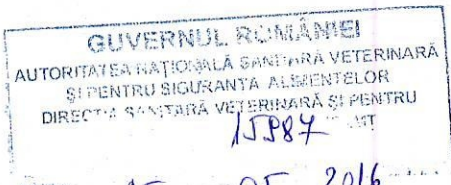 GUVERNUL ROMÂNIEI
AUTORITATEA NAȚIONALĂ SANITARĂ VETERINARĂ
ȘI PENTRU SIGURANȚA ALIMENTELOR
DIRECȚIA SANITARĂ VETERINARĂ ȘI PENTRU
15987
05 2016